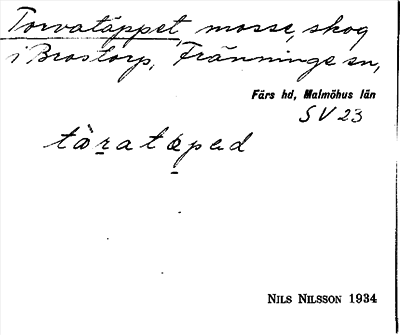 Torvatäppet, mosse, skog
i Brostorp, Fränninge sn,
Färs hd, Malmöhus län
SV 23
tòratæped
NILS NILSSON 1934